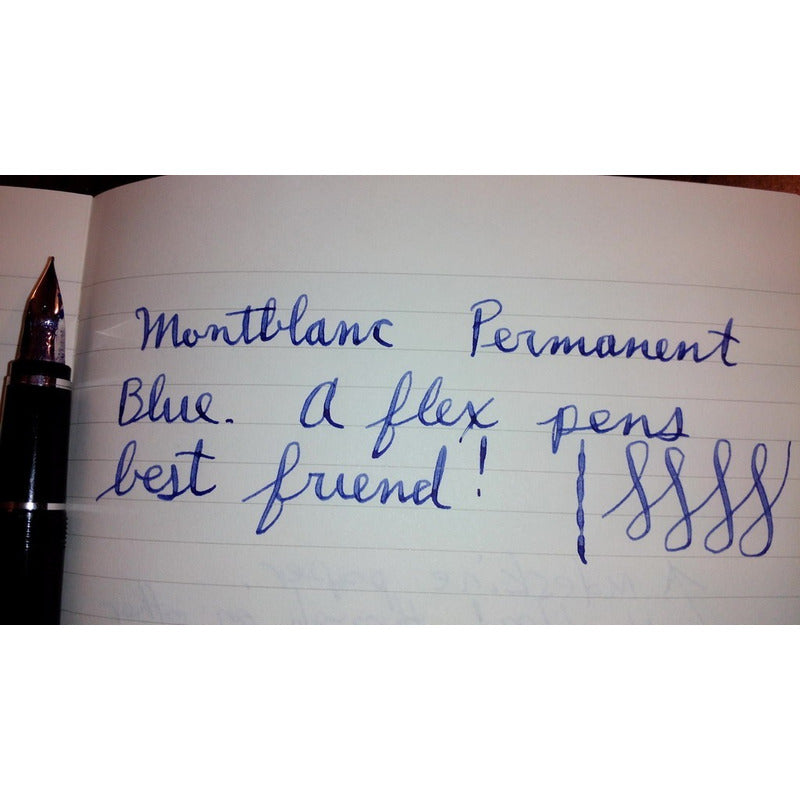 Montblanc Permanent
Blue. A flex pens
best friend!